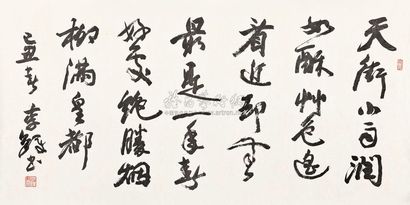 天街小雨润
如酥草色遥
看近却无
最是一年春
好处绝胜烟
柳满皇都
己丑春 李铎书